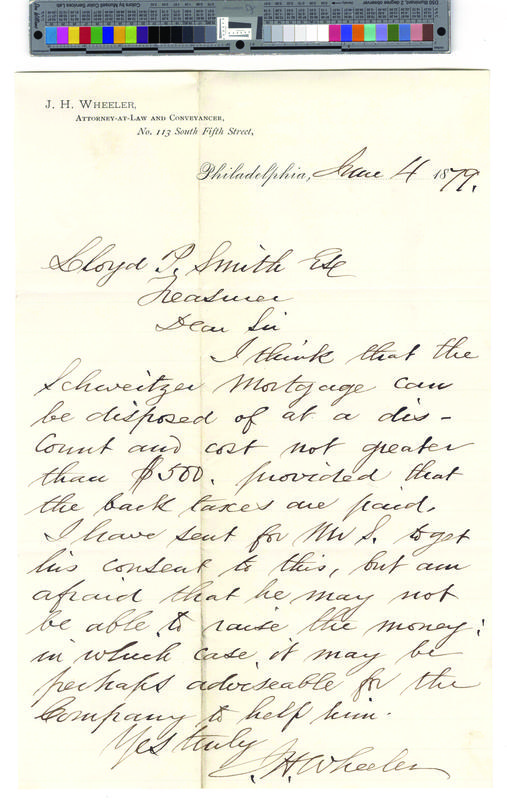 J. H. WHEELER,
ATTORNEY-AT-LAW AND CONVEYANCER,
No. 113 South Fifth Street,
Philadelphia, June 4 1879.
Lloyd P. Smith Esq
Treasurer
Dear Sir
I think that the
Schweitzer Mortgage can
be disposed of at a dis-
count and cost not greater
than $500. provided that
the back taxes are paid.
I have sent for Mr S. to get
his consent to this, but am
afraid that he may not
be able to raise the money;
in which case it may be
perhaps adviseable for the
Company to help him.
Yrs truly
J. H. Wheeler